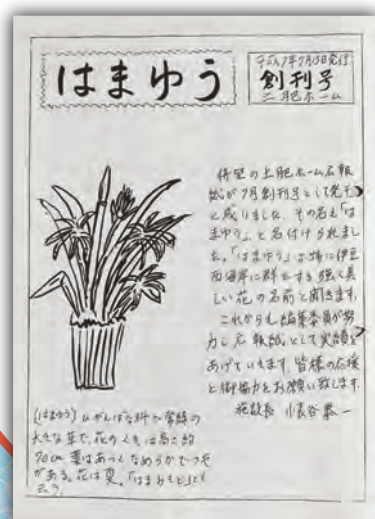 はまゆう
平成7年7月15日発行
創刊号
土肥ホーム
待望の土肥ホーム広報
紙が7月創刊号として発刊
と成りました。その名も「は
まゆう」と名付けられまし
た。「はまゆう」は特に伊豆
西海岸に群生する強く美
しい花の名前と聞きます。
これからも編集委員が努
力し広報紙として実績を
あげていきます。皆様の応援
と御協力をお願い致します。
施設長 小長谷恭一
(はまゆう)ひがんばな科の常緑の
大きな草で、花のくきは高さ約
70cm 葉はあつくなめらかでつや
がある。花は夏。「はまおもと」とも
云う。